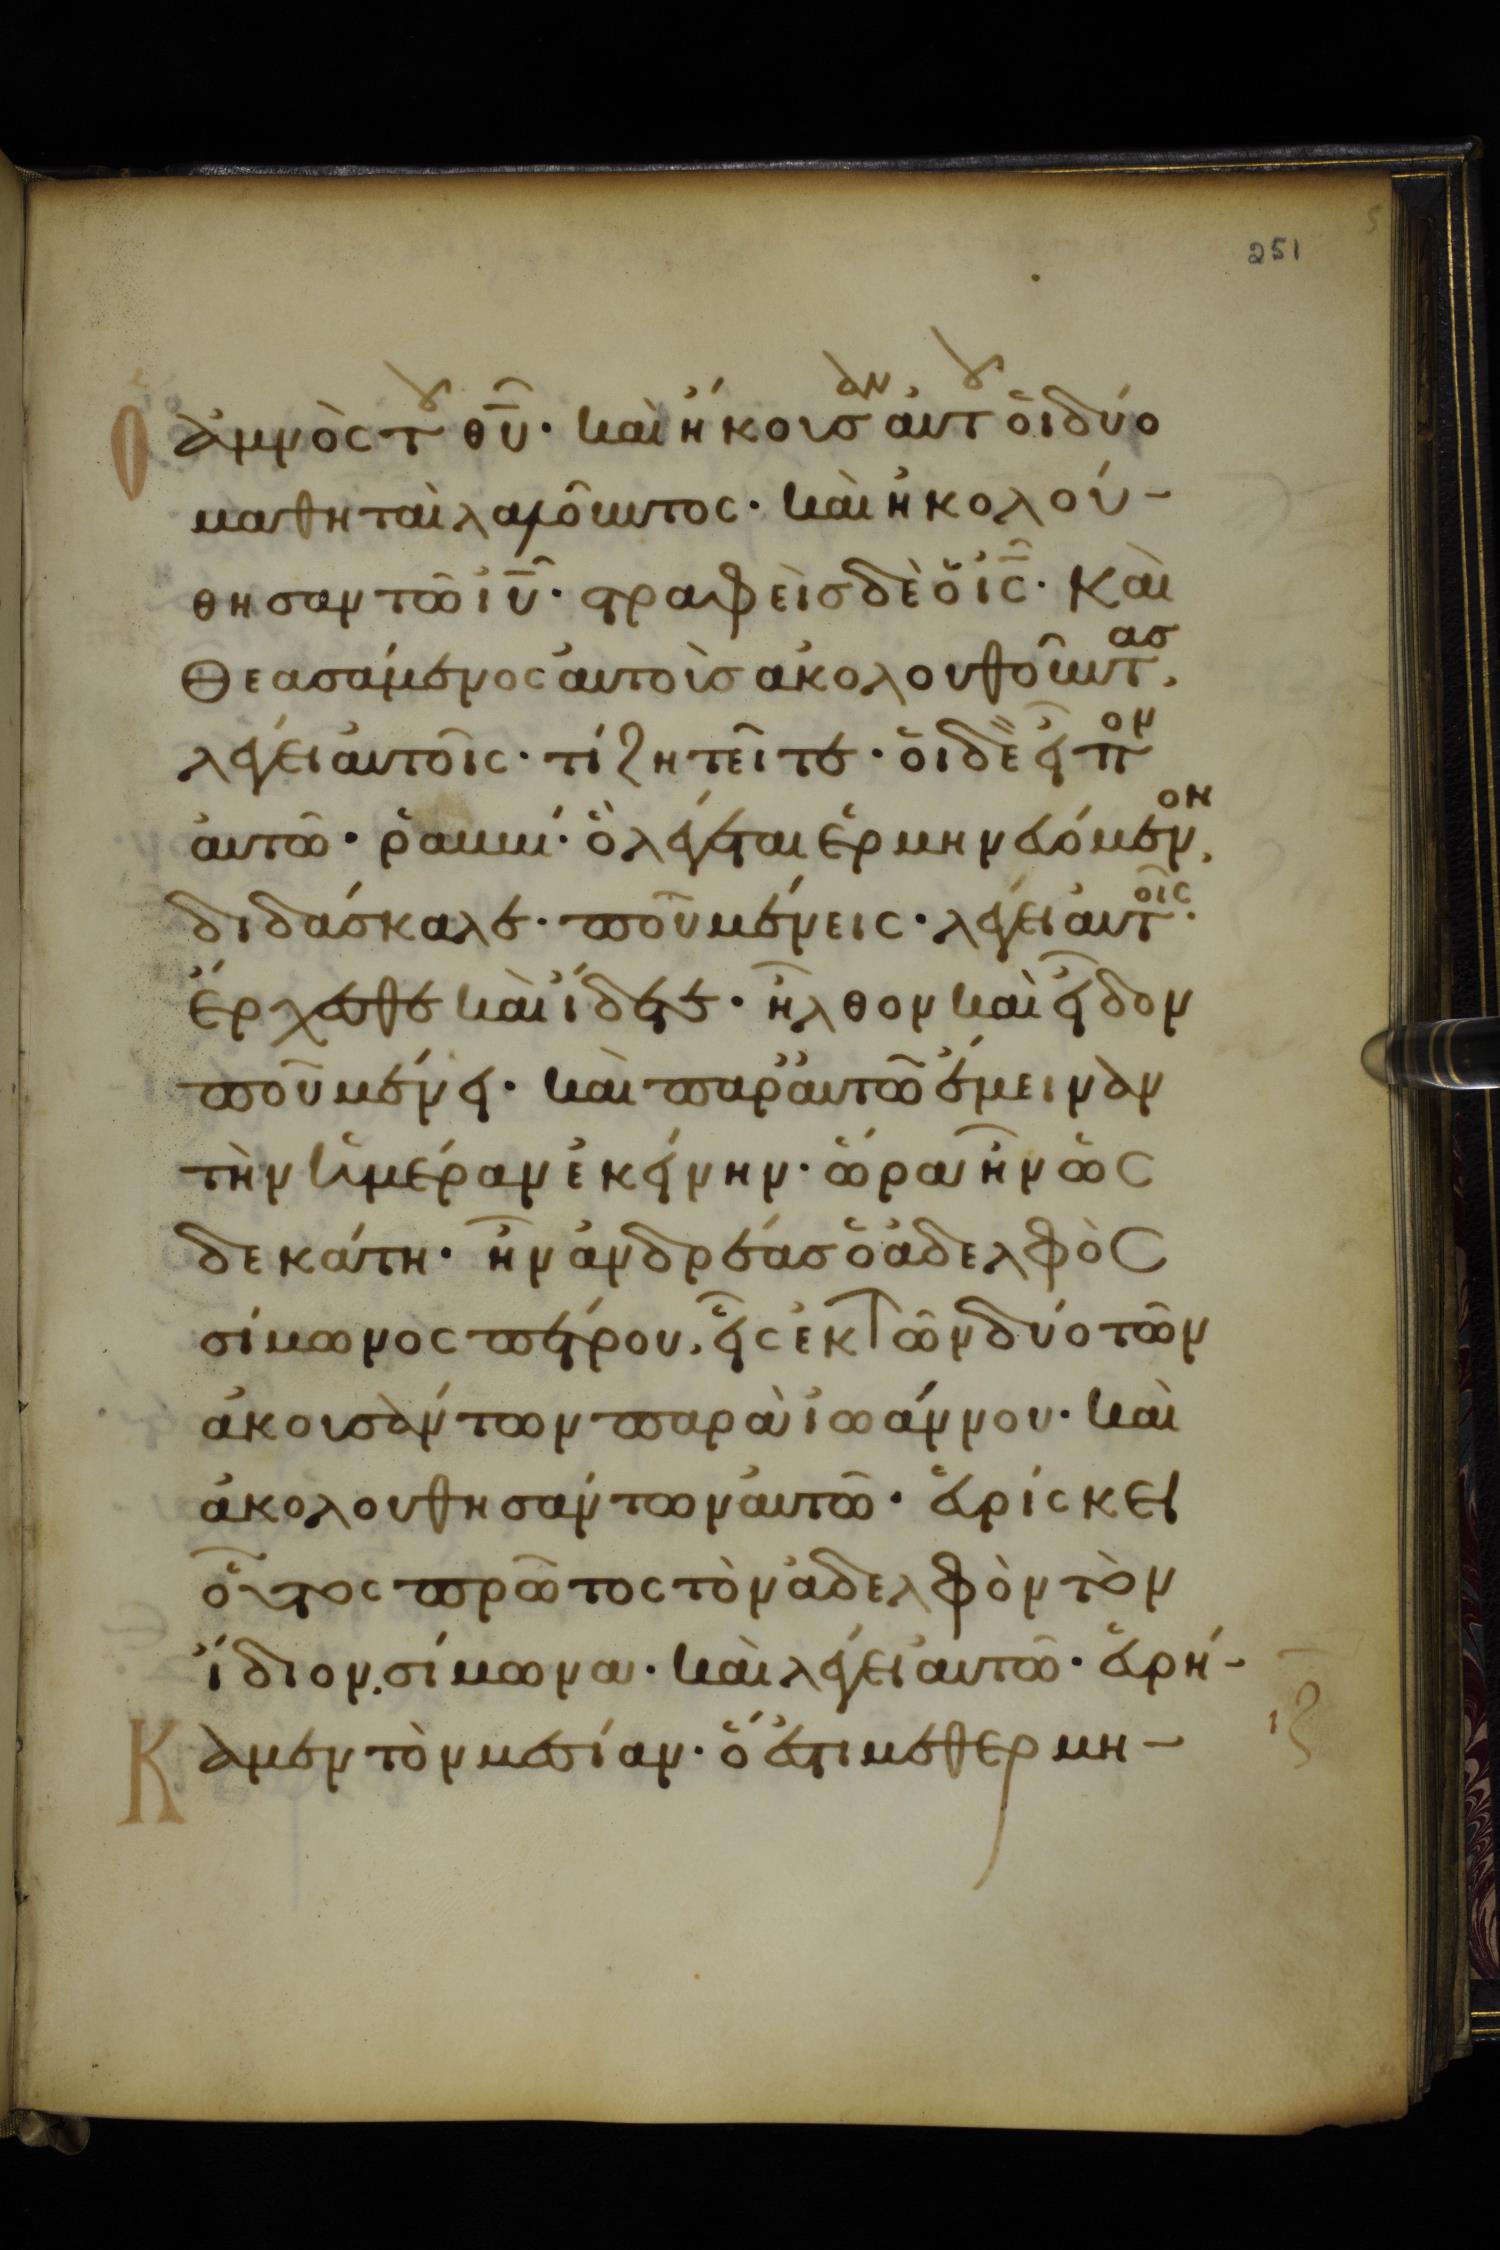 251
Ὁ ἀμνὸς τοῦ θυ· καὶ ἤκουσαν αὐτοῦ ὁι δύο
μαθηταὶ λαλοῦντος· καὶ ἠκολού-
θησαν τῶ ιυ· στραφεὶς δὲ ὁ ις· Καὶ
Θεασάμενος αὐτοὺς ἀκολουθοῦντας,
λέγει αὐτοῖς· τί ζητεῖτε· ὁι δὲ εἶπον
αὐτῶ· ῥαββί· ὃ λέγεται ἑρμηνευόμενον,
διδάσκαλε· ποῦ μένεις· λέγει αὐτοῖς·
ἔρχεσθε καὶ ἴδετε· ἦλθον καὶ εἶδον
ποῦ μένει· καὶ παρ' αὐτῶ ἔμειναν
τὴν ἡμέραν ἐκείνην· ὥρα ἦν ὡς
δεκάτη· ἦν ἀνδρέας ὁ ἀδελφὸς
σίμωνος πέτρου, εἷς ἐκ τῶν δύο τῶν
ἀκουσάντων παρὰ ἰωάννου· καὶ
ἀκολουθησάντων αὐτῶ· εὑρίσκει
οὗτος πρῶτος τὸν ἀδελφὸν τὸν
ἴδιον, σίμωνα· καὶ λέγει αὐτῶ· εὑρή-
Καμεν τὸν μεσίαν· ὅ ἐστι μεθερμη-
ιζ